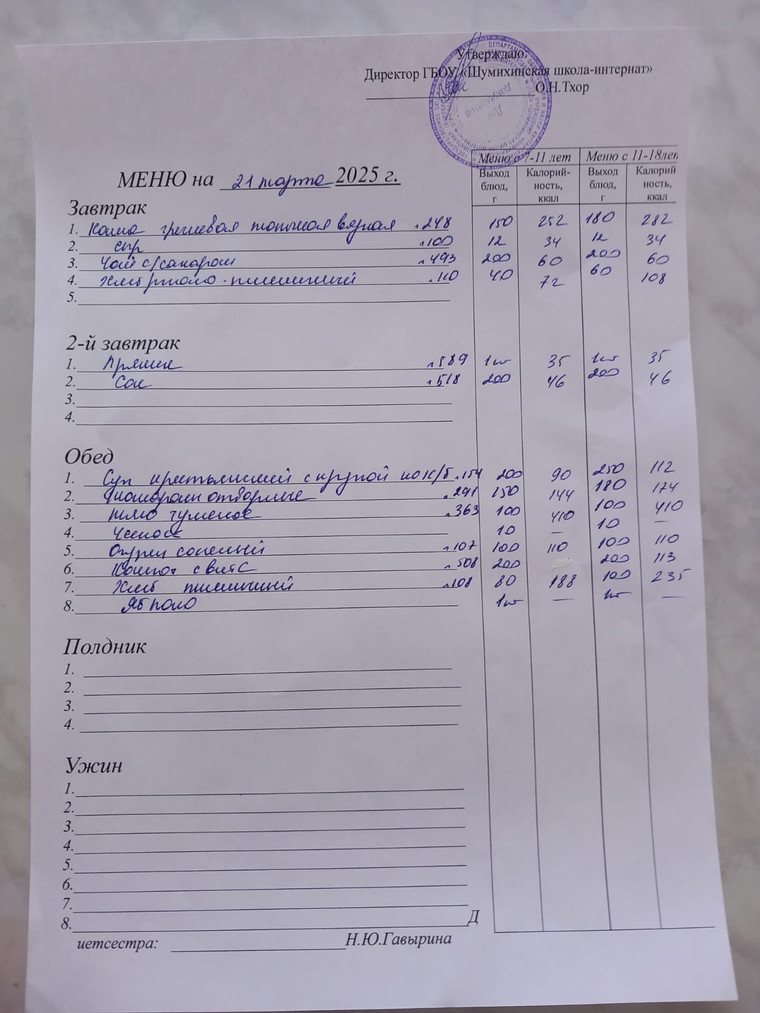 Утверждаю:
Директор ГБОУ «Шумихинская школа-интернат»
О.Н.Тхор
МЕНЮ на 21 марта 2025 г.
Меню с 7-11 лет Меню с 11-18лет
Выход блюд, г Калорий-ность, ккал Выход блюд, г Калорий ность, ккал
Завтрак
1. Каша гречневая молочная вязкая №248 150 252 180 282
2. Сыр №100 12 34 12 34
3. Чай с/сахаром №493 200 60 200 60
4. Хлеб ржано-пшеничный №110 40 72 60 108
5.
2-й завтрак
1. Пряник №589 1шт 35 1шт 35
2. Сок №518 200 46 200 46
3.
4.
Обед
1. Суп крестьянский с крупой на к/б №154 200 90 250 112
2. Макароны отварные №291 150 144 180 174
3. Мясо тушеное №363 100 410 100 410
4. Чеснок 10 — 10 —
5. Огурец соленый №107 100 110 100 110
6. Компот с вит С №508 200 200 113
7. Хлеб пшеничный №108 80 188 100 235
8. Яблоко 1шт — 1шт —
Полдник
1.
2.
3.
4.
Ужин
1.
2.
3.
4.
5.
6.
7.
8. Д
иетсестра: Н.Ю.Гавырина